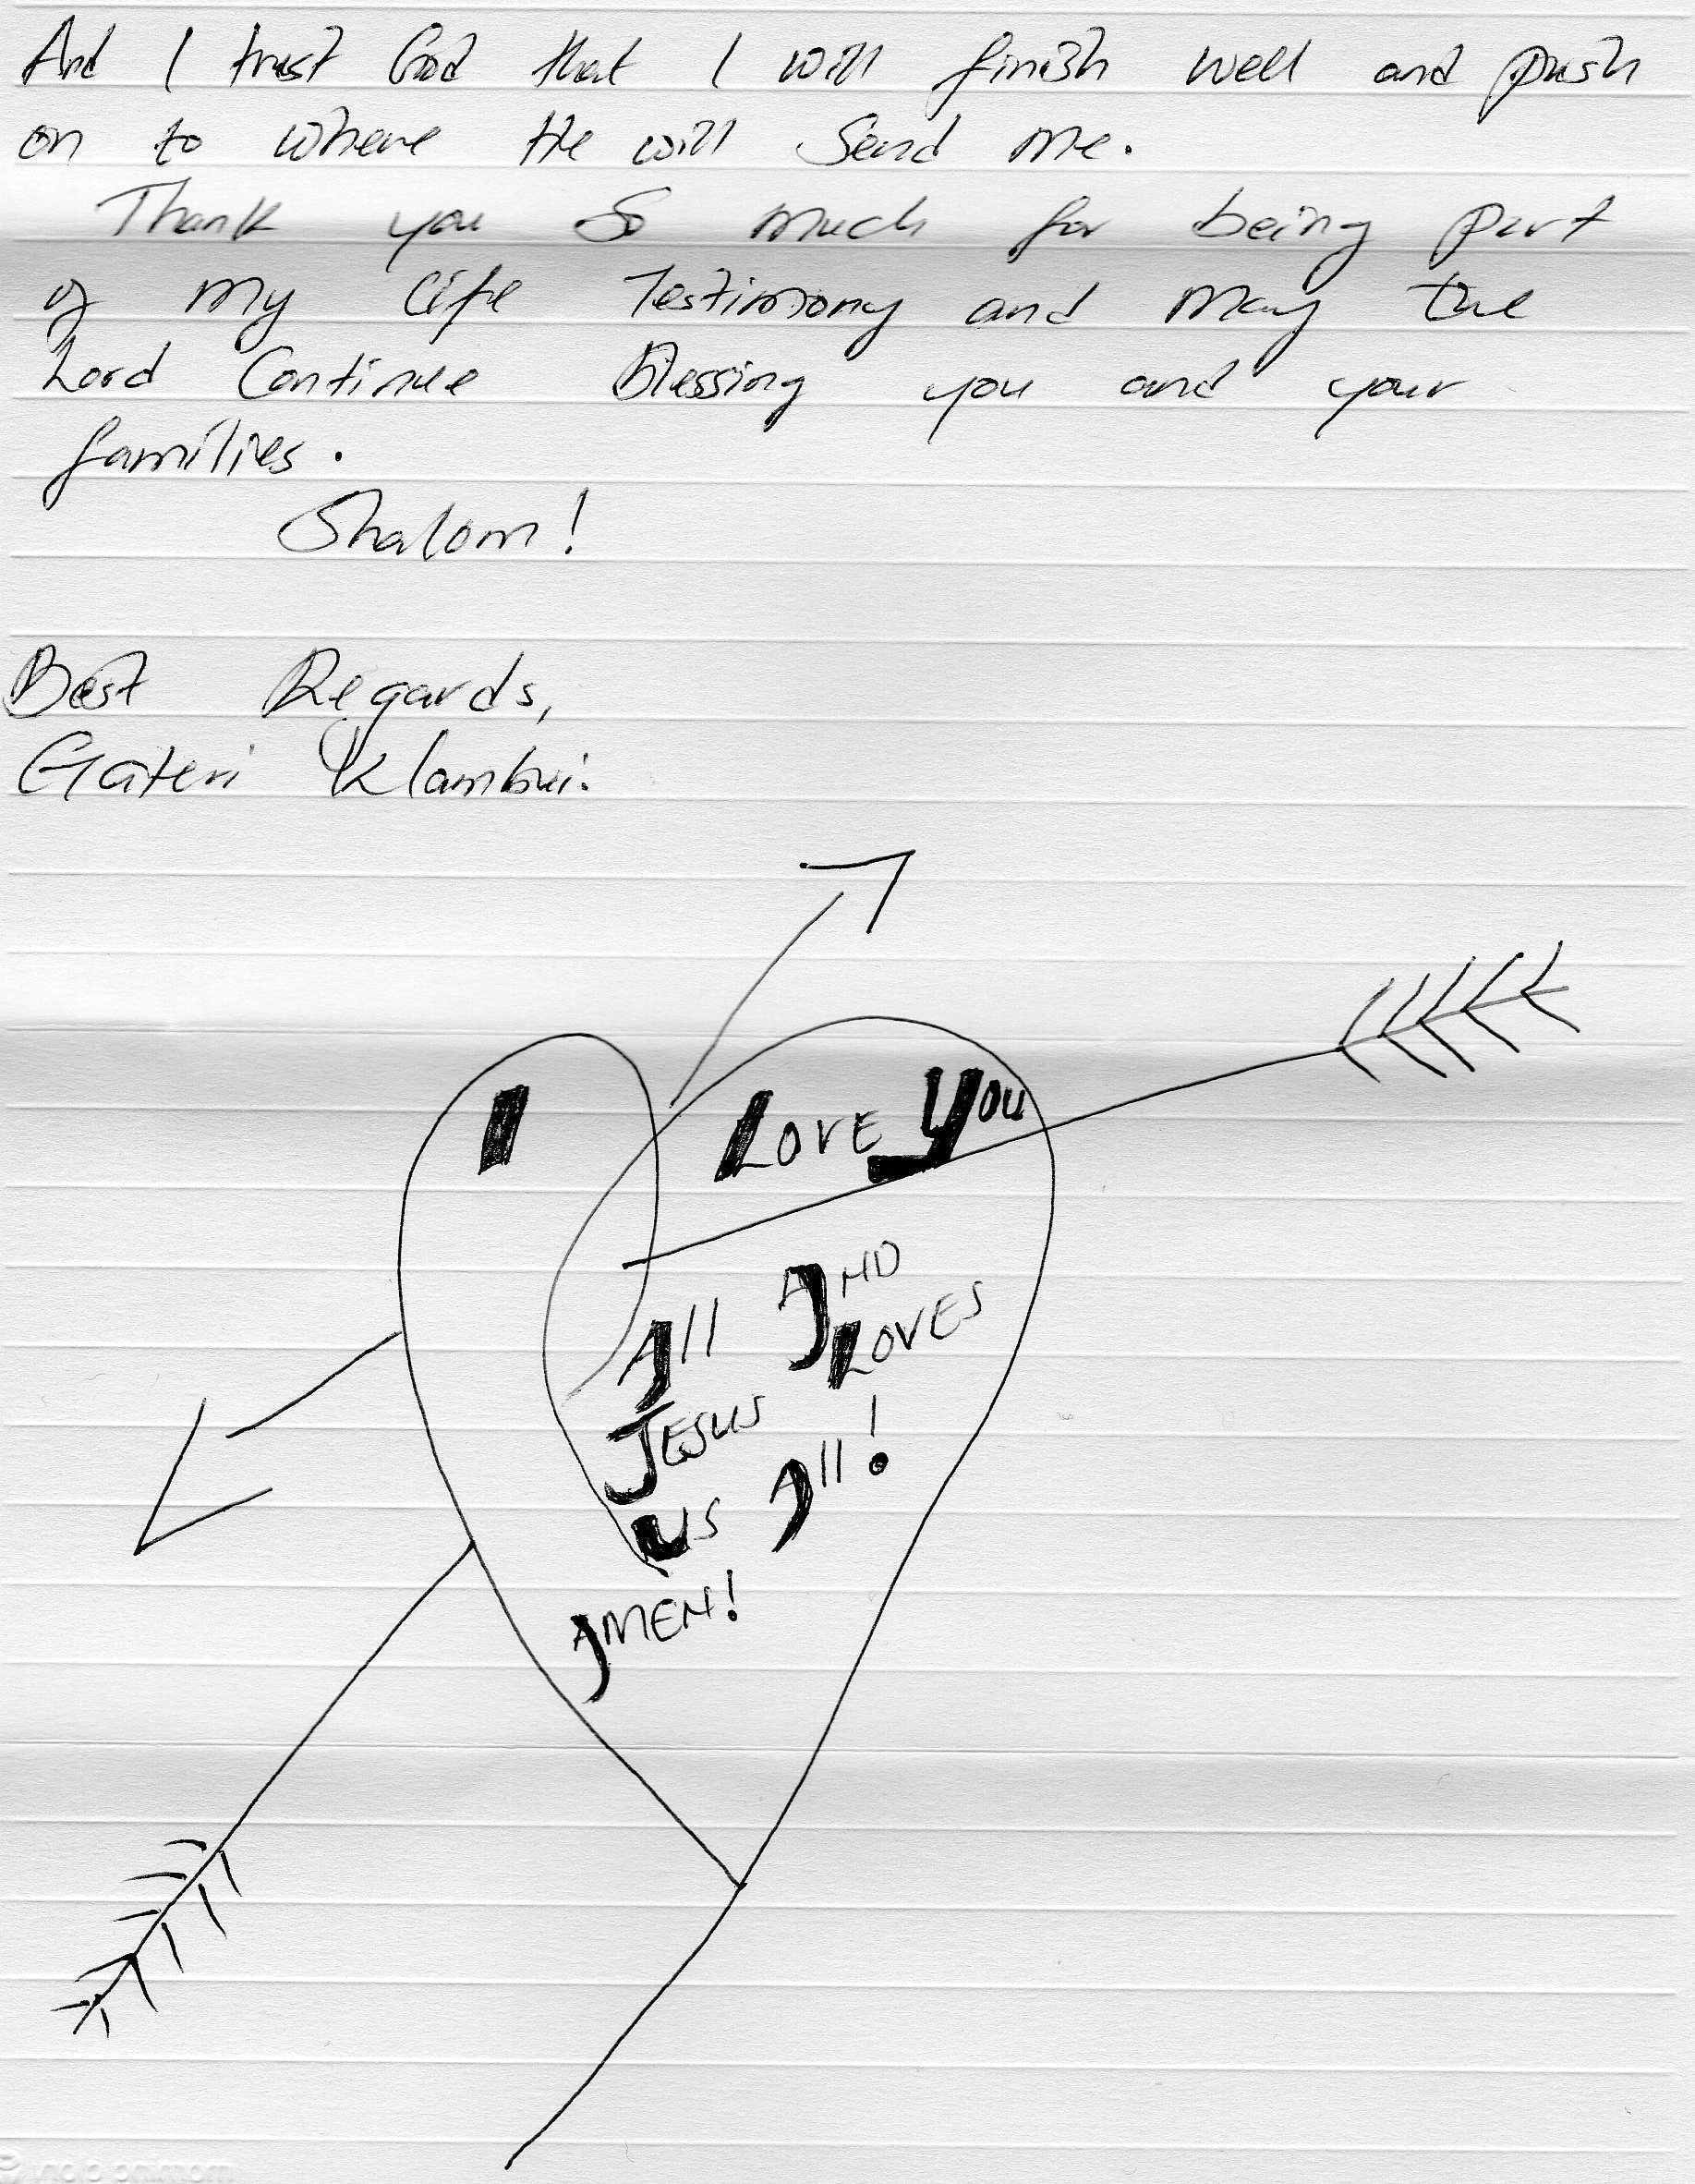 And I trust God that I will finish well and push
on to where He will Send me.
Thank you So much for being part
of my life Testimony and may the
Lord Continue Blessing you and your
families.
Shalom!
Best Regards,
Gateri
I Love You
All AND
JESUS LOVES
US All!
AMEN!